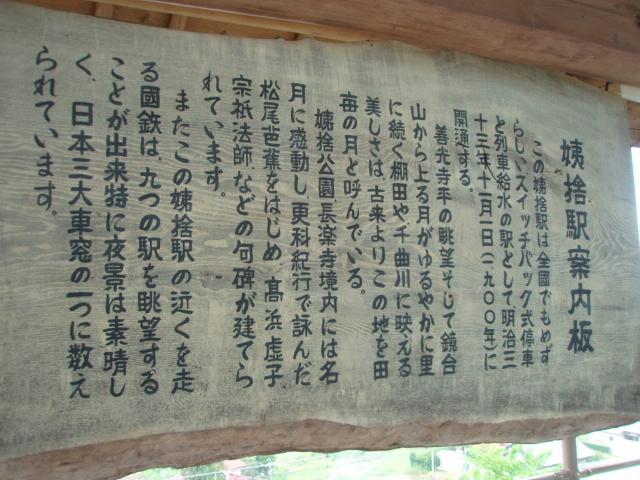 姨捨駅案内板
この姨捨駅は全国でもめず
らしいスイッチバック式停車
と列車給水の駅として明治三
十三年十一月一日(一九〇〇年)に
開通する。
善光寺平の眺望そして鏡台
山から上る月がゆるやかに里
に続く棚田や千曲川に映える
美しさは、古来よりこの地を田
毎の月と呼んでいる。
姨捨公園、長楽寺境内には名
月に感動し、更科紀行で詠んだ
松尾芭蕉をはじめ、高浜虚子、
宗祇法師、などの句碑が建てら
れています。
またこの姨捨駅の近くを走
る國鉄は、九つの駅を眺望する
ことが出来特に夜景は素晴し
く、日本三大車窓の一つに数え
られています。